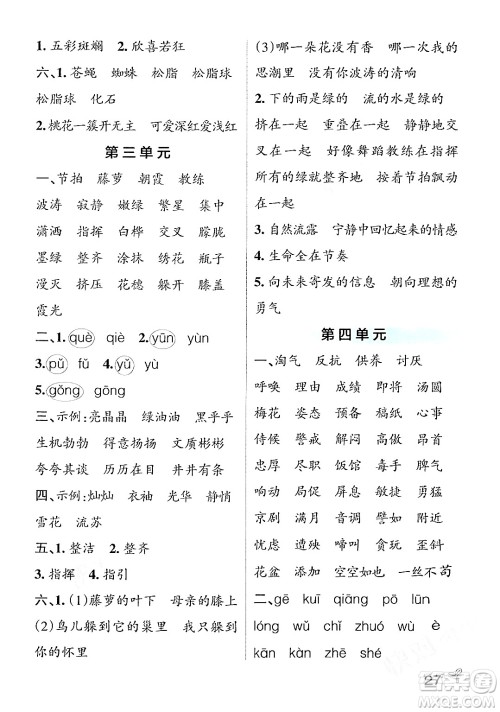 1. 五彩斑斓　2. 欣喜若狂
六、1. 苍蝇　蜘蛛　松脂　松脂球
松脂球　化石
2. 桃花一簇开无主　可爱深红爱浅红
第三单元
一、节拍　藤萝　朝霞　教练
波涛　寂静　嫩绿　繁星　集中
潇洒　指挥　白桦　交叉　朦胧
墨绿　整齐　涂抹　绣花　瓶子
漫灭　挤压　花穗　躲闪　膝盖
霞光
二、1. què　qiè　2. yūn　yùn
3. pǔ　fǔ　4. yǔ　yù
5. gǒng　gōng
三、示例:亮晶晶　绿油油　黑乎乎
生机勃勃　得意扬扬　文质彬彬
夸夸其谈　历历在目　井井有条
四、示例:灿灿　衣袖　光华　静悄
雪花　流苏
五、1. 整洁　2. 整齐
3. 指挥　4. 指引
六、1.(1)藤萝的叶下　母亲的膝上
(2)鸟儿躲到它的巢里　我只躲到
你的怀里
(3)哪一朵花没有香　哪一次我的
思潮里　没有你波涛的清响
2. 下的雨是绿的　流的水是绿的
挤在一起　重叠在一起　静静地交
叉在一起　好像舞蹈教练在指挥
所有的绿就整齐地　按着节拍飘动
在一起
3. 自然流露　宁静中回忆起来的情感
4. 生命全在节奏
5. 向未来寄发的信息　朝向理想的
勇气
第四单元
一、淘气　反抗　供养　讨厌
呼唤　理由　成绩　即将　汤圆
梅花　姿态　预备　稿纸　心事
侍候　警戒　解闷　高傲　昂首
忠厚　尽职　饭馆　毒手　花裙
响动　局促　屏息　敏捷　勇猛
京剧　满月　音调　譬如　大概
忧虑　遭殃　啼叫　贪玩　歪斜
花盆　掺杂　空空如也　一丝不苟
二、gē　kuī　qiāng　pō　yǔ
lóng　wú　chǐ　zhuó　wù
kān　kàn　zhē　shé
27